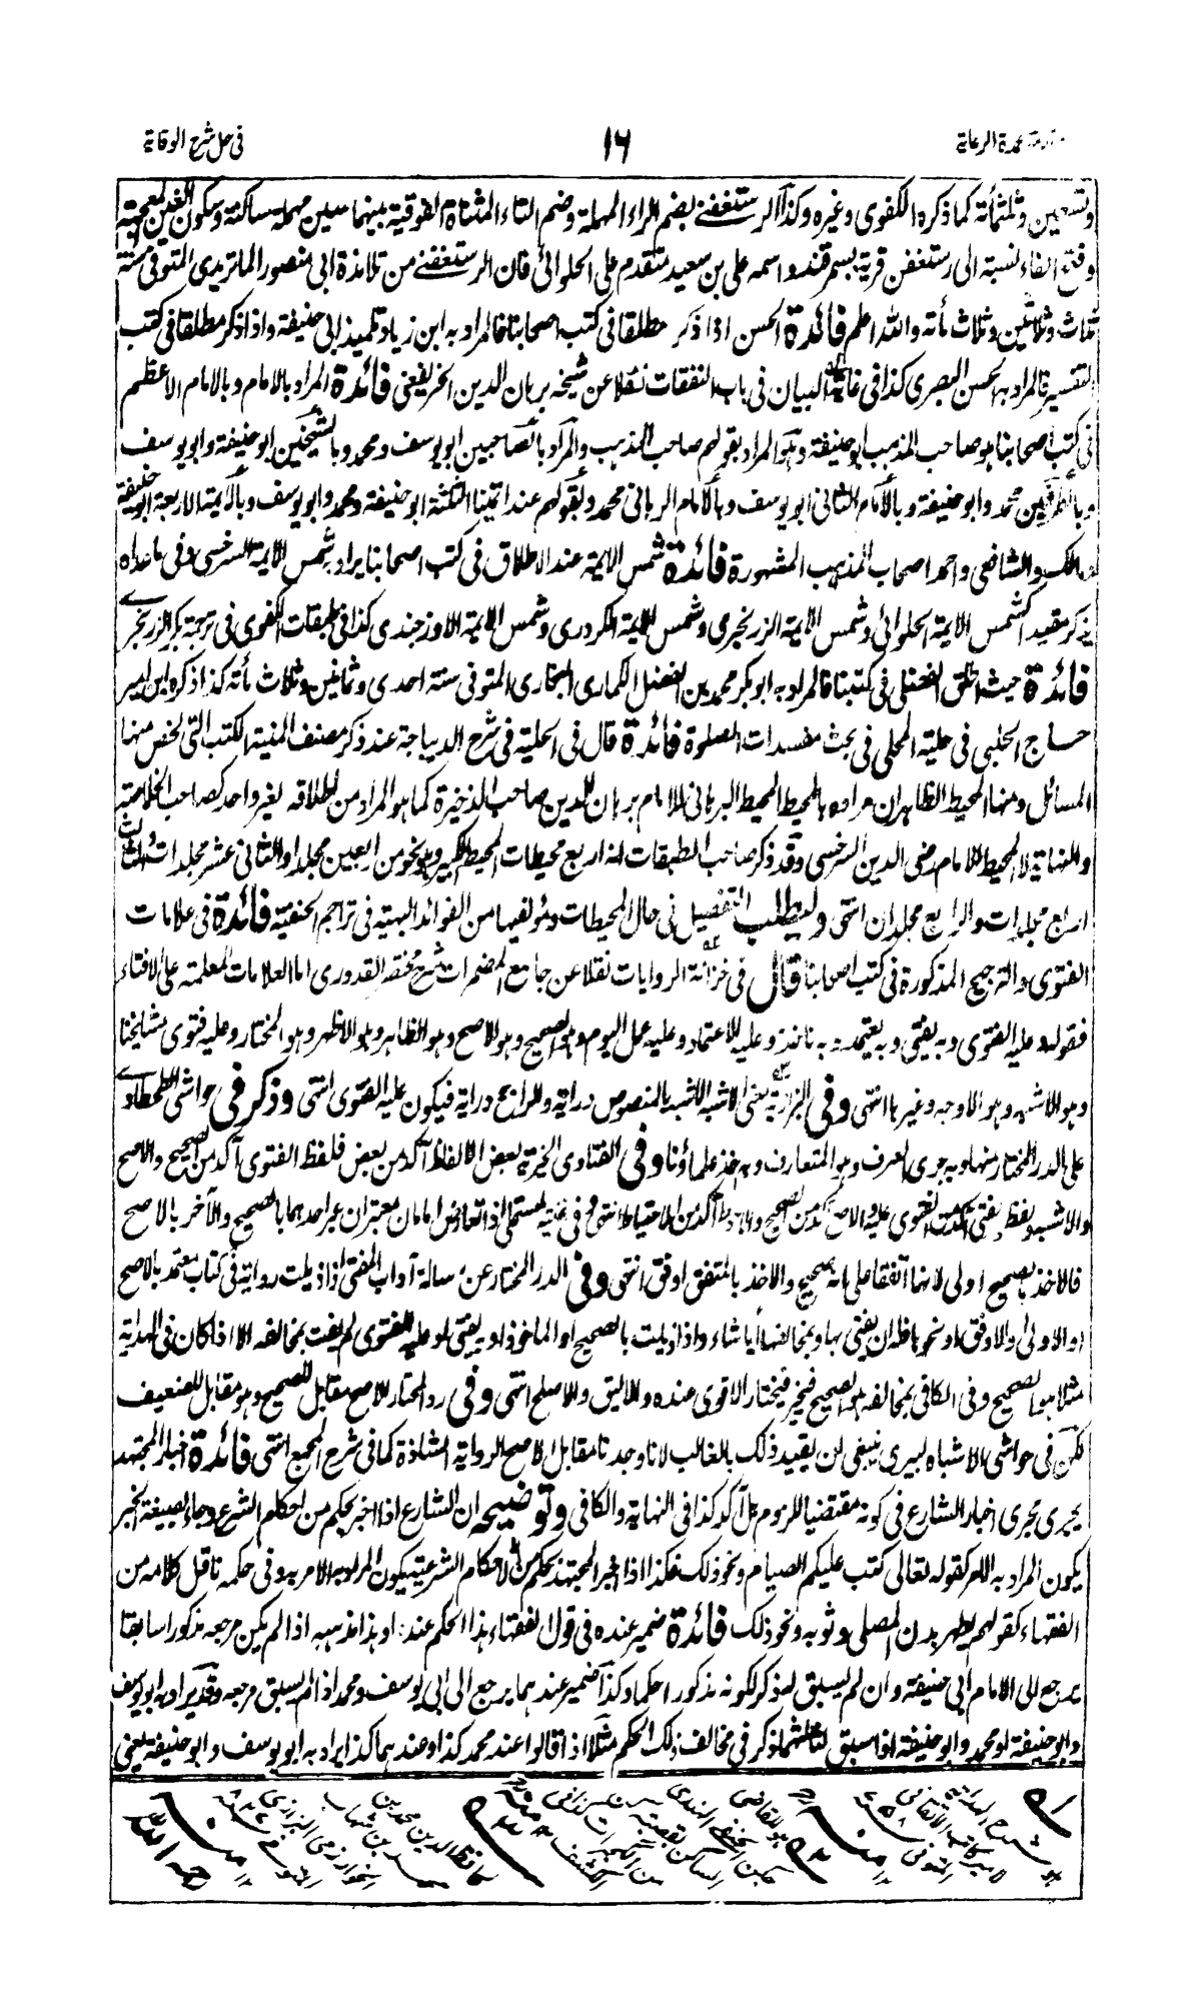 مقدمة عمدة الرعاية
١٦
فى حل شرح الوقاية
وتسعين وثلثمأئة كما ذكره الكفوى وغيره وكذا الرستغفنى بضم الراء المهملة وضم التاء المثناة الفوقية بينهما سين مهملة ساكنة وسكون الغين المعجمة
وفتح الفاء نسبة الى رستغفن قرية بسمرقند واسمه على بن سعيد متقدم على الحلوائى فان الرستغفنى من تلامذة ابى منصور الماتريدى المتوفى سنة
ثلاث وثلاثين وثلاث مأته والله اعلم فائدة الحسن اذا ذكر مطلقا فى كتب اصحابنا فالمراد به ابن زياد تلميذ ابى حنيفة واذا ذكر مطلقا فى كتب
التفسير فالمراد به الحسن البصرى كذا فى غاية البيان فى باب النفقات نقلا عن شيخه برهان الدين الخريفعنى فائدة المراد بالامام وبالامام الاعظم
فى كتب اصحابنا هو صاحب المذهب ابو حنيفة وهو المراد بقولهم صاحب المذهب والمراد بالصاحبين ابو يوسف ومحمد وبالشيخين ابو حنيفة وابو يوسف
وبالطرفين محمد وابو حنيفة وبالامام الثانى ابو يوسف وبالامام الربانى محمد وبقولهم عند ائمتنا الثلثة ابو حنيفة ومحمد وابو يوسف وبالائمة الاربعة ابو حنيفة
ومالك والشافعى واحمد اصحاب المذهب المشهورة فائدة شمس الائمة عند الاطلاق فى كتب اصحابنا يراد به شمس الائمة السرخسى وفى ما عداه
يذكر مقيدا كشمس الائمة الحلوائى وشمس الائمة الزرنجرى وشمس الائمة الكردرى وشمس الائمة الاوزجندى كذا فى طبقات الكفوى فى ترجمة بكر الزرنجرى
فائدة حيث اطلق الفضلى فى كتبنا فالمراد به ابو بكر محمد بن الفضل الكمارى البخارى المتوفى سنة احدى وثمانين وثلاث مأته كذا ذكره ابن امير
حاج الحلبى فى حلية المحلى فى بحث مفسدات الصلوة فائدة قال فى الحلية فى شرح الديباجة عند ذكر مصنف المنية الكتب التى لخص منها
المسائل ومنها المحيط الظاهر ان مراده بالمحيط المحيط البرهانى للامام برهان الدين صاحب الذخيرة كما هو المراد من اطلاقه لغير واحد كصاحب الخلاصة
والنهاية لا المحيط للامام رضى الدين السرخسى وقد ذكر صاحب الطبقات انه اربع محيطات المحيط الكبير وهو نحو من اربعين مجلدا والثانى عشر مجلدات والثالث
اربع مجلدات والرابع مجلدان انتهى وليطلب التفصيل فى حال المحيطات ومؤلفيها من الفوائد البهية فى تراجم الحنفية فائدة فى علامات
الفتوى والترجيح المذكورة فى كتب اصحابنا قال فى خزانة الروايات نقلا عن جامع المضمرات شرح مختصر القدورى اما العلامات المعلمة على الافتاء
فقوله وعليه الفتوى وبه يفتى وبه يعتمد وبه ناخذ وعليه الاعتماد وعليه عمل اليوم وهو الصحيح وهو الاصح وهو الظاهر وهو الاظهر وهو المختار وعليه فتوى مشايخنا
وهو الاشبه وهو الاوجه وغيرها انتهى وفى البزازية معنى الاشبه الاشبه بالمنصوص دراية والراجح دراية فيكون عليه الفتوى انتهى وذكر فى حواشى الطحطاوى
على الدر المختار منها وبه جرى العرف وهو المتعارف وبه اخذ علماؤنا وفى الفتاوى الخيرية بعض الالفاظ آكد من بعض فلفظ الفتوى آكد من الصحيح والاصح
والاشبه ولفظ به يفتى آكد من الفتوى عليه والاصح آكد من الصحيح والاحوط آكد من الاحتياط انتهى وفى غنية المستملى اذا تعارض امامان معتبران عبر احدهما بالصحيح والآخر بالاصح
فالاخذ بالصحيح اولى لانهما اتفقا على انه صحيح والاخذ بالمتفق اوفق انتهى وفى الدر المختار عن رسالة آداب المفتى اذا ذيلت رواية فى كتاب معتمد بالاصح
او الاولى والاوفق او نحوها فله ان يفتى بها وبمخالفها ايا شاء واذا ذيلت بالصحيح او الماخوذ او به يفتى او عليه الفتوى لم يفت بمخالفه الا اذا كان فى الهداية
مثلا هو الصحيح وفى الكافى بمخالفه هو الصحيح فيخير فيختار الاقوى عنده والاليق والاصلح انتهى وفى رد المحتار الاصح مقابل للصحيح وهو مقابل للضعيف
لكن فى حواشى الاشباه لبيرى ينبغى ان يقيد ذلك بالغالب لانا وجدنا مقابل الاصح الرواية الشاذة كما فى شرح المجمع انتهى فائدة اخبار المجتهد
يجرى مجرى اخبار الشارع فى كونه مقتضيا للزوم بل آكد كذا فى النهاية والكافى وتوضيحه ان الشارع اذا اخبر بحكم من احكام الشرع وجاء بصيغة الخبر
يكون المراد به الامر كقوله تعالى كتب عليكم الصيام ونحو ذلك فكذا اذا اخبر المجتهد بحكم من الاحكام الشرعية يكون المراد به الامر به وفى حكمه ناقل كلامه من
الفقهاء كقولهم يطهر بدن المصلى وثوبه ونحو ذلك فائدة ضمير عنده فى قول الفقهاء هذا الحكم عنده او هذا مذهبه اذا لم يكن مرجعه مذكورا سابقا
يرجع الى الامام ابى حنيفة وان لم يسبق له ذكر لكونه مذكورا حكما وكذا ضمير عندهما يرجع الى ابى يوسف ومحمد اذا لم يسبق مرجعه وقد يراد به ابو يوسف
وابو حنيفة او محمد وابو حنيفة اذا سبق لثالثهما ذكر فى مخالف ذلك الحكم مثلا اذا قالوا عند محمد كذا وعندهما كذا يراد به ابو يوسف وابو حنيفة يعنى